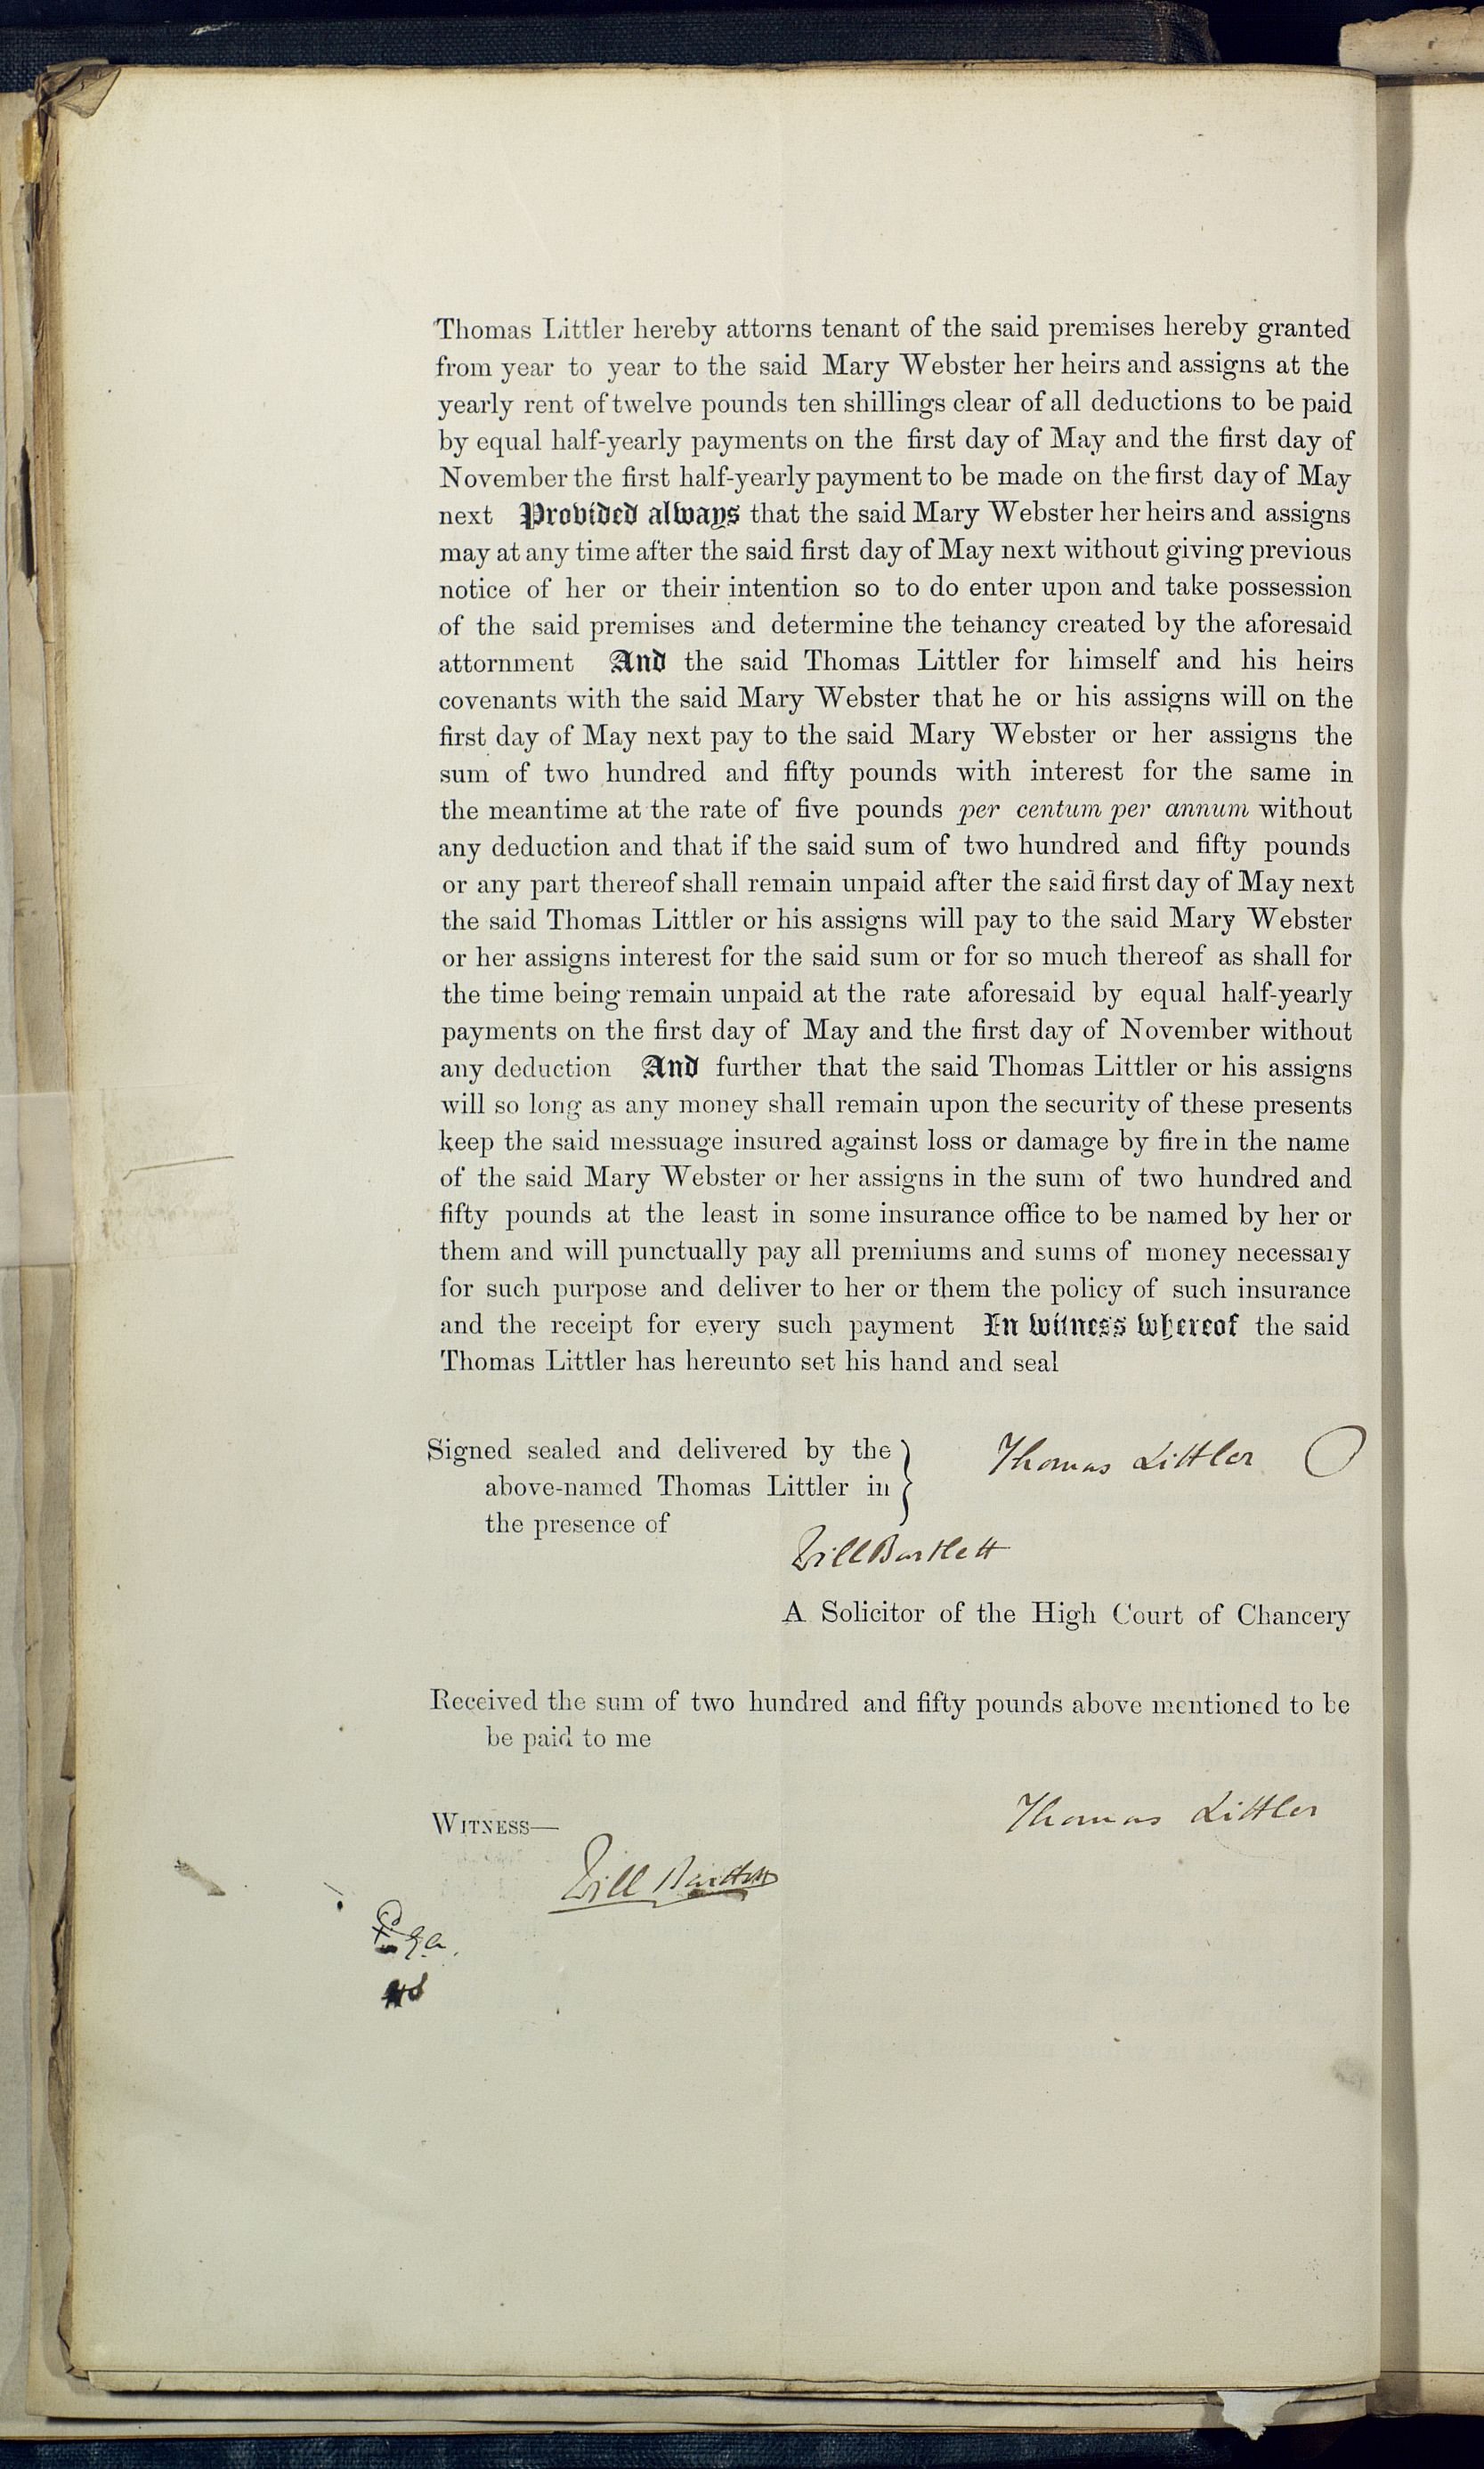 Thomas Littler hereby attorns tenant of the said premises hereby granted
from year to year to the said Mary Webster her heirs and assigns at the
yearly rent of twelve pounds ten shillings clear of all deductions to be paid
by equal half-yearly payments on the first day of May and the first day of
November the first half-yearly payment to be made on the first day of May
next Provided always that the said Mary Webster her heirs and assigns
may at any time after the said first day of May next without giving previous
notice of her or their intention so to do enter upon and take possession
of the said premises and determine the tenancy created by the aforesaid
attornment And the said Thomas Littler for himself and his heirs
covenants with the said Mary Webster that he or his assigns will on the
first day of May next pay to the said Mary Webster or her assigns the
sum of two hundred and fifty pounds with interest for the same in
the meantime at the rate of five pounds per centum per annum without
any deduction and that if the said sum of two hundred and fifty pounds
or any part thereof shall remain unpaid after the said first day of May next
the said Thomas Littler or his assigns will pay to the said Mary Webster
or her assigns interest for the said sum or for so much thereof as shall for
the time being remain unpaid at the rate aforesaid by equal half-yearly
payments on the first day of May and the first day of November without
any deduction And further that the said Thomas Littler or his assigns
will so long as any money shall remain upon the security of these presents
keep the said messuage insured against loss or damage by fire in the name
of the said Mary Webster or her assigns in the sum of two hundred and
fifty pounds at the least in some insurance office to be named by her or
them and will punctually pay all premiums and sums of money necessary
for such purpose and deliver to her or them the policy of such insurance
and the receipt for every such payment In witness whereof the said
Thomas Littler has hereunto set his hand and seal
Signed sealed and delivered by the
above-named Thomas Littler in
the presence of
Thomas Littler
Will Bartlett
A Solicitor of the High Court of Chancery
Received the sum of two hundred and fifty pounds above mentioned to be
be paid to me
Thomas Littler
WITNESS—
Will Bartlett